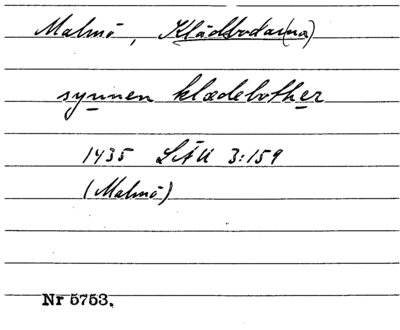 Malmö, Klädbodar(na)
synnen klædebother
1435 LÄU 3:159
(Malmö)
Nr 5753.